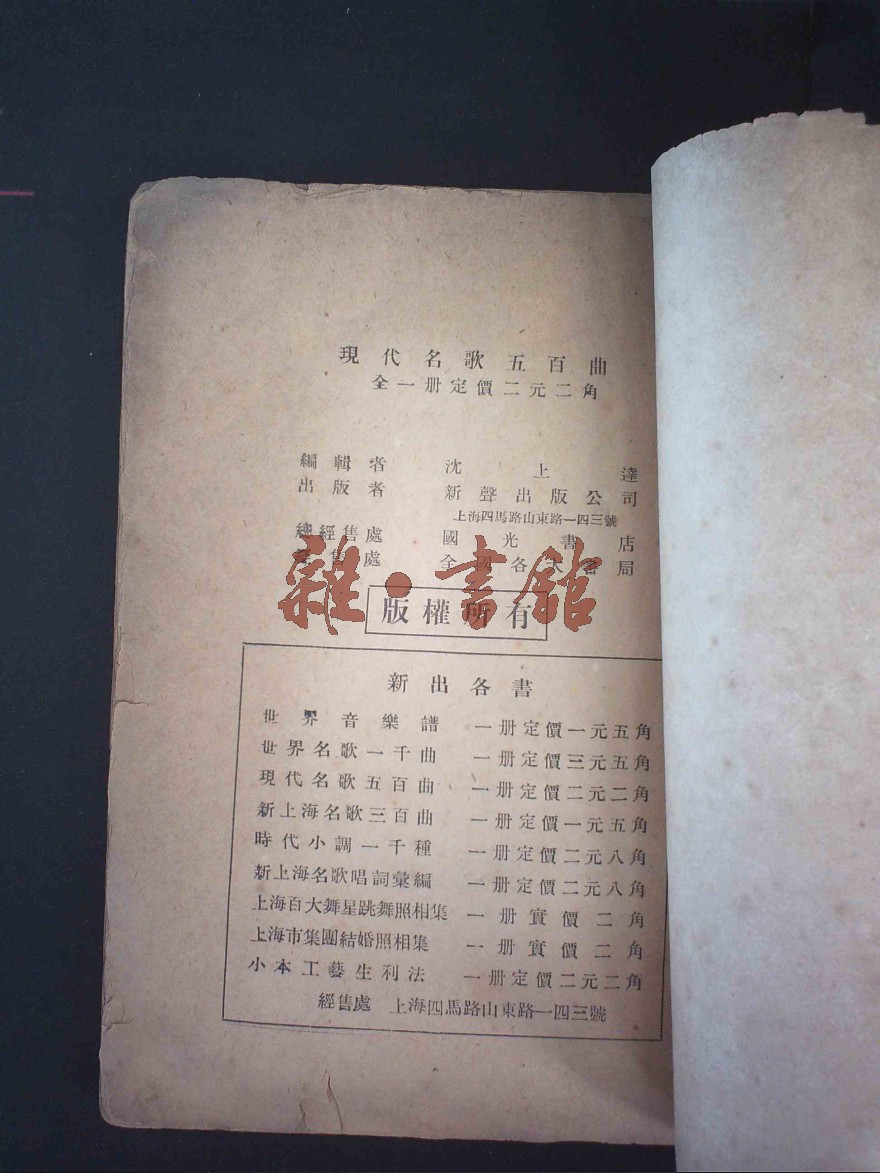 現代名歌五百曲
全一册定價二元二角
編輯者 沈上達
出版者 新聲出版公司
上海四馬路山東路一四三號
總經售處 國光書店
售處 全國各大書局
雜·書館
版權所有
新出各書
世界音樂譜 一册定價一元五角
世界名歌一千曲 一册定價三元五角
現代名歌五百曲 一册定價二元二角
新上海名歌三百曲 一册定價一元五角
時代小調一千種 一册定價二元八角
新上海名歌唱詞彙編 一册定價二元八角
上海百大舞星跳舞照相集 一册實價二角
上海市集團結婚照相集 一册實價二角
小本工藝生利法 一册定價二元二角
經售處 上海四馬路山東路一四三號